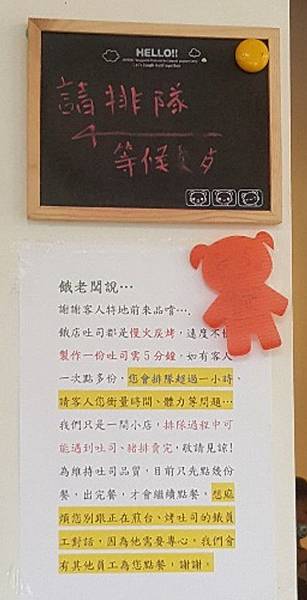 HELLO!!
請排隊
等候
餓老闆說…
謝謝客人特地前來品嚐….
餓店吐司都是慢火炭烤，速度不
製作一份吐司需5分鐘，如有客人
一次點多份，您會排隊超過一小時，
請客人您衡量時間、體力等問題…
我們只是一間小店，排隊過程中可
能遇到吐司、豬排賣完，敬請見諒!
為維持吐司品質，目前只先點幾份
餐，出完餐，才會繼續點餐，想麻
煩您別跟正在煎台、烤吐司的餓員
工對話，因為他需要專心，我們會
有其他員工為您點餐，謝謝。